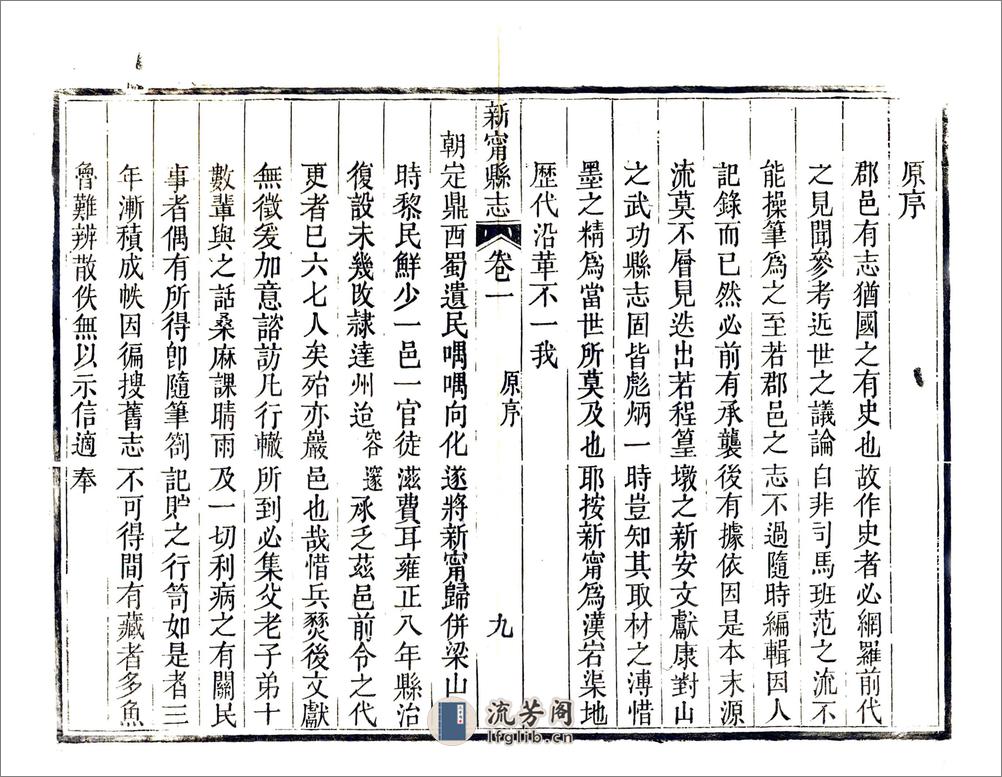 原序
郡邑有志猶國之有史也故作史者必網羅前代
之見聞參考近世之議論自非司馬班范之流不
能操筆爲之至若郡邑之志不過隨時編輯因人
記錄而已然必前有承襲後有據依因是本末源
流莫不層見迭出若程篁墩之新安文獻康對山
之武功縣志固皆彪炳一時豈知其取材之漙惜
墨之精爲當世所莫及也耶按新甯爲漢宕渠地
歷代沿革不一我
新甯縣志 卷一 原序 九
朝定鼎西蜀遺民喁喁向化遂將新甯歸併梁山
時黎民鮮少一邑一官徒滋費耳雍正八年縣治
復設未幾改隷達州迨容邃承乏茲邑前令之代
更者已六七人矣殆亦巖邑也哉惜兵燹後文獻
無徵爰加意諮訪凡行轍所到必集父老子弟十
數輩與之話桑麻課晴雨及一切利病之有關民
事者偶有所得卽隨筆劄記貯之行笥如是者三
年漸積成帙因徧搜舊志不可得間有藏者多魚
魯難辨散佚無以示信適奉
流芳阁
lfglib.cn